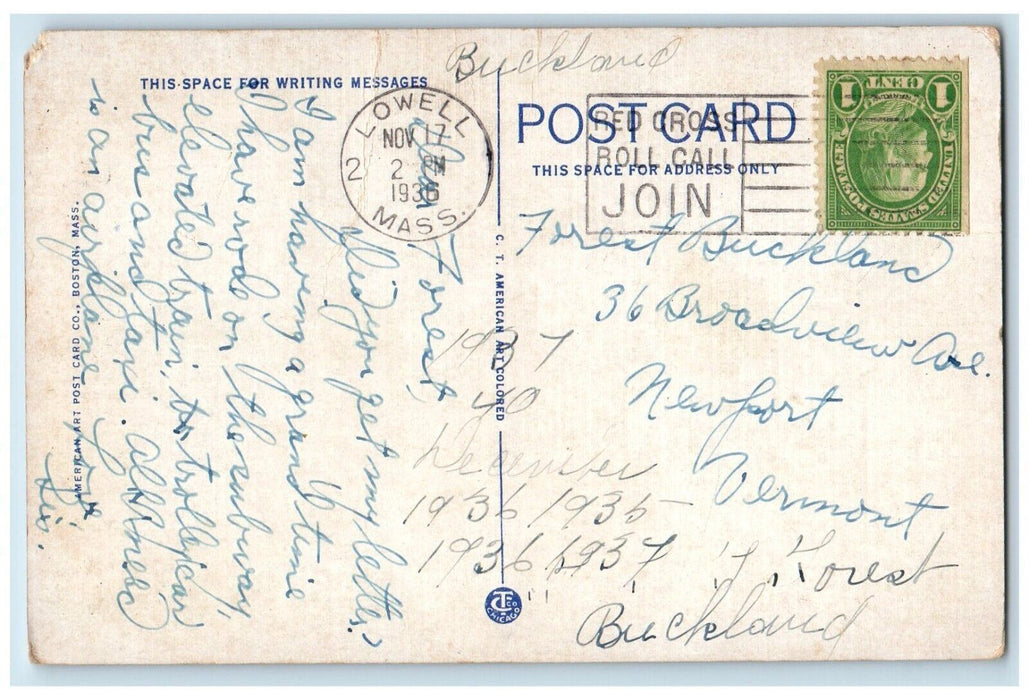 Buckland
THIS SPACE FOR WRITING MESSAGES
POST CARD
THIS SPACE FOR ADDRESS ONLY
LOWELL
NOV 17
2 PM
1936
MASS.
2
RED CROSS
ROLL CALL
JOIN
1 CENT 1
UNITED STATES POSTAGE
Dear
Forest,
Did you get my letter?
I am having a grand time
I have rode on the subway,
elevated train, trolley car
bus and taxi. All I need
is an airplane
Love,
Sis.
Forest Buckland
36 Broadview Ave.
Newport
Vermont
1937
40
December
1936 1935
1936 1937
Forest
Buckland
AMERICAN ART POST CARD CO., BOSTON, MASS.
C. T. AMERICAN ART COLORED
CT CO
CHICAGO